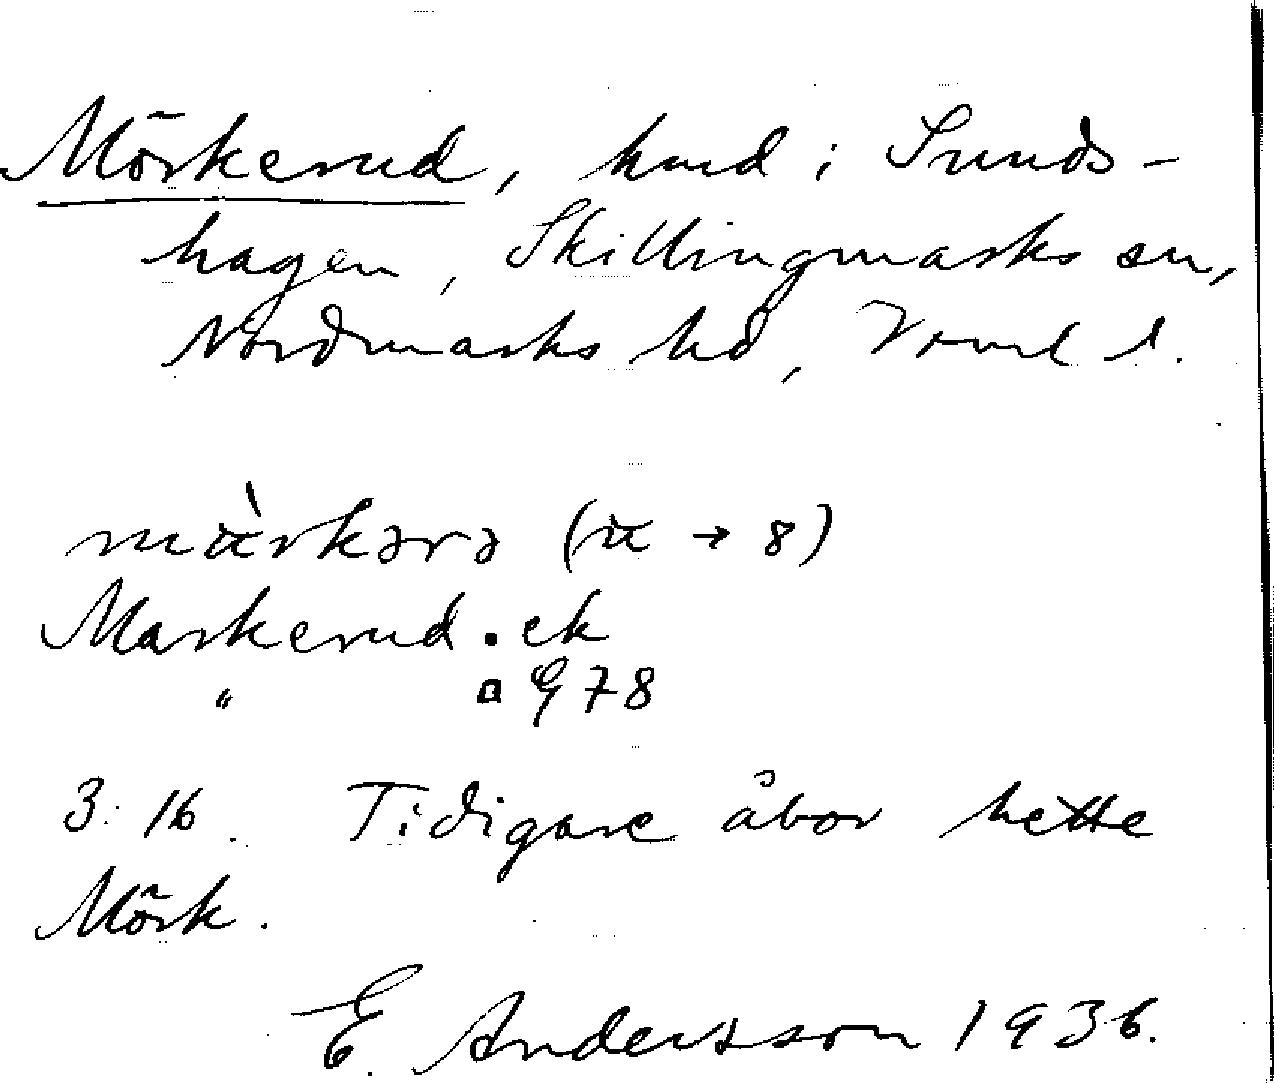 Mörkerud, hmd i Sunds-
hagen, Skillingmarks sn,
Nordmarks hd, Vrml l.
mä̀rkərə (ä → 8)
Markerud • ek
" ¤ G 78
3:16. Tidigare åbor hette
Mörk.
E. Andersson 1936.